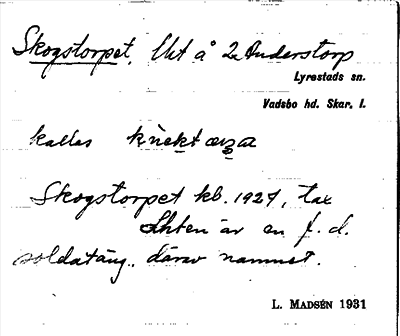 Skogstorpet, lht å 2 Anderstorp
Lyrestads sn.
Vadsbo hd. Skar. l.
kallas
Skogstorpet kb. 1927, tax
Lhten är en f. d.
soldatäng., därav namnet.
L. MADSÉN 1931